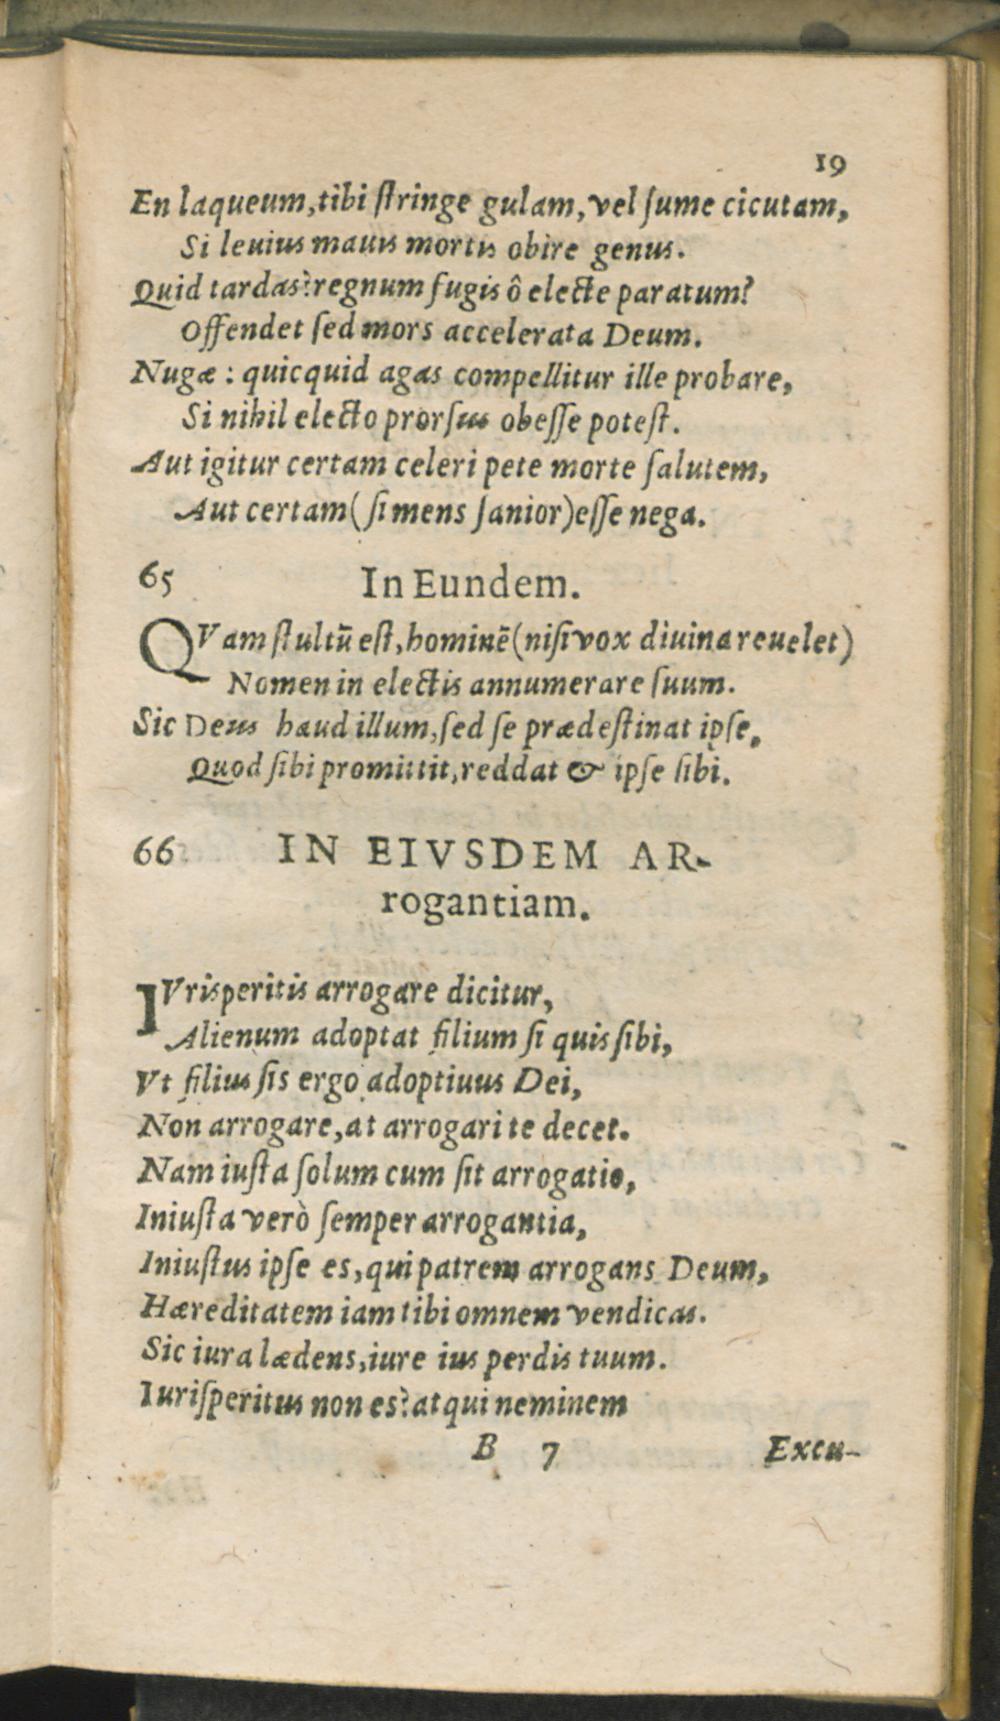 19
En laqueum, tibi ſtringe gulam, vel ſume cicutam,
Si leuius mauis mortis obire genus.
Quid tardas? regnum fugis ô electe paratum?
Offendet ſed mors accelerata Deum.
Nugæ : quicquid agas compellitur ille probare,
Si nihil electo prorſus obeſſe poteſt.
Aut igitur certam celeri pete morte ſalutem,
Aut certam (ſi mens ſanior) eſſe nega.
65 In Eundem.
QVam ſtultū eſt, hominē (niſi vox diuina reuelet)
Nomen in electis annumerare ſuum.
Sic Deus haud illum, ſed ſe prædeſtinat ipſe,
Quod ſibi promittit, reddat & ipſe ſibi.
66 IN EIVSDEM AR-
rogantiam.
IVrisperitis arrogare dicitur,
Alienum adoptat filium ſi quis ſibi,
Vt filius ſis ergo adoptiuus Dei,
Non arrogare, at arrogari te decet.
Nam iuſta ſolum cum ſit arrogatio,
Iniuſta verò ſemper arrogantia,
Iniuſtus ipſe es, qui patrem arrogans Deum,
Hæreditatem iam tibi omnem vendicas.
Sic iura lædens, iure ius perdis tuum.
Iuriſperitus non es? atqui neminem
B 7 Excu-